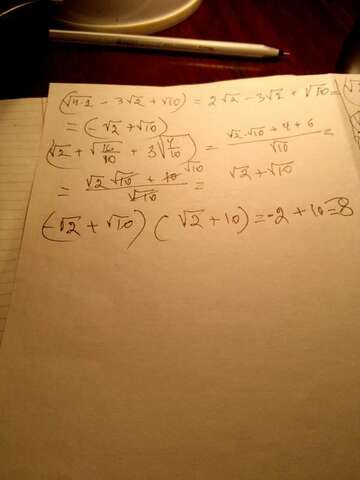 (√4·2 - 3√2 + √10) = 2√2 - 3√2 + √10 =
= (-√2 + √10)
(√2 + √16/10 + 3√4/10) = √2·√10 + 4 + 6 / √10 =
= √2 √10 + 10 / √10 = √2 + √10
(-√2 + √10) (√2 + 10) = -2 + 10 = 8